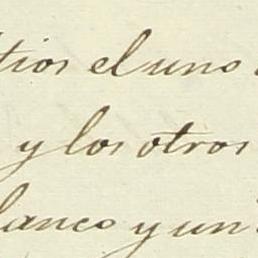 tios el uno
y los otros
lanco y un